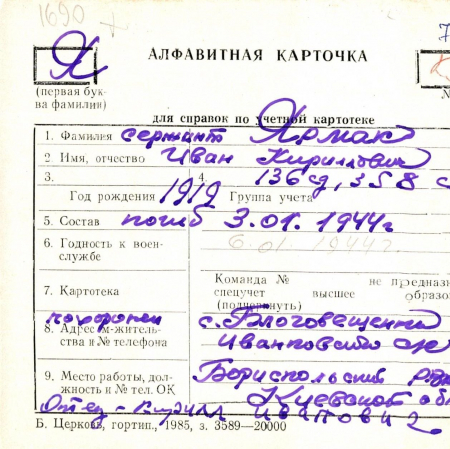 1690
Я
АЛФАВИТНАЯ КАРТОЧКА
(первая бук-
ва фамилии)
№
для справок по учетной картотеке
1. Фамилия сержант Ярмак
2. Имя, отчество Иван Кириллович
3. 4. 136 сд, 358 с
Год рождения 1912 Группа учета
5. Состав погиб 3.01.1944г
6. Годность к воен- 6.01.1944г.
службе
Команда № не предназн
7. Картотека спецучет высшее образо
(подчеркнуть)
похоронен с. Благовещенка
8. Адрес м-житель-
ства и № телефона Ивановского
9. Место работы, дол- Бориспольский
жность и № тел. ОК Киевской об
Отец - Кирилл Иванович
Б. Церковь, гортип., 1985, з. 3589—20000